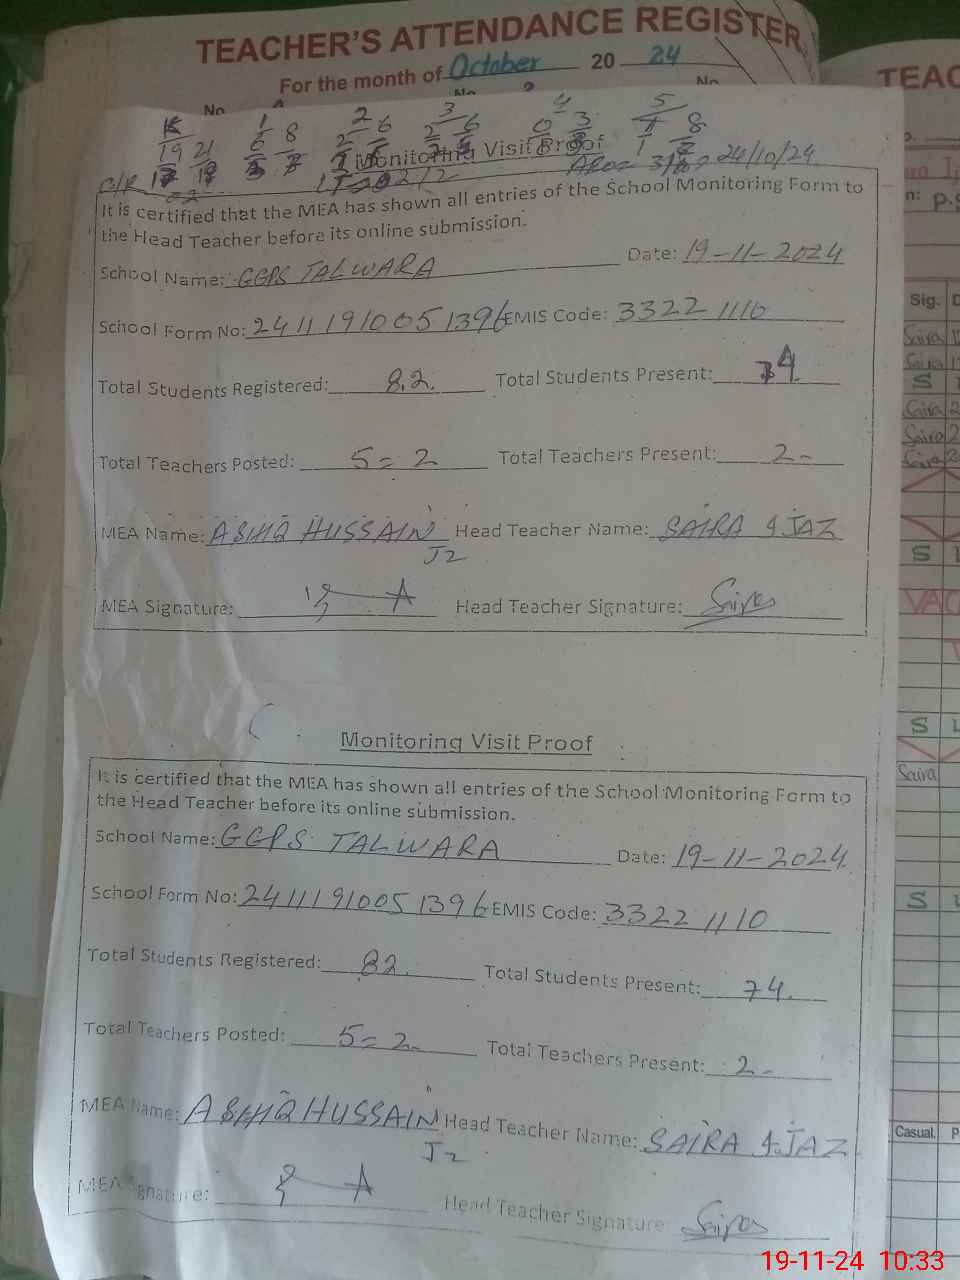 TEACHER'S ATTENDANCE REGISTER
For the month of October 20 24
No
No
No
TEAC
K 1 2 3 4 5
19 21 6 8 2 6 2 6 0 3 1 8
Monitoring Visit Proof
24/10/24
It is certified that the MEA has shown all entries of the School Monitoring Form to
the Head Teacher before its online submission.
School Name: GGPS TALWARA Date: 19-11-2024
School Form No: 24111910051396 EMIS Code: 33221110
Total Students Registered: 82. Total Students Present: 74
Total Teachers Posted: 5=2 Total Teachers Present: 2-
MEA Name: ASHIQ HUSSAIN Head Teacher Name: SAIRA IJAZ
J2
MEA Signature: Head Teacher Signature: Saira
Monitoring Visit Proof
It is certified that the MEA has shown all entries of the School Monitoring Form to
the Head Teacher before its online submission.
School Name: GGPS TALWARA Date: 19-11-2024
School Form No: 24111910051396 EMIS Code: 33221110
Total Students Registered: 82. Total Students Present: 74.
Total Teachers Posted: 5=2. Total Teachers Present: 2-
MEA Name: ASHIQ HUSSAIN Head Teacher Name: SAIRA IJAZ
J2
MEA Signature: Head Teacher Signature: Saira
Sig.
Saira
Saira
S
Saira
Saira
Saira
S
VAC
S
Saira
S
Casual. P
19-11-24 10:33